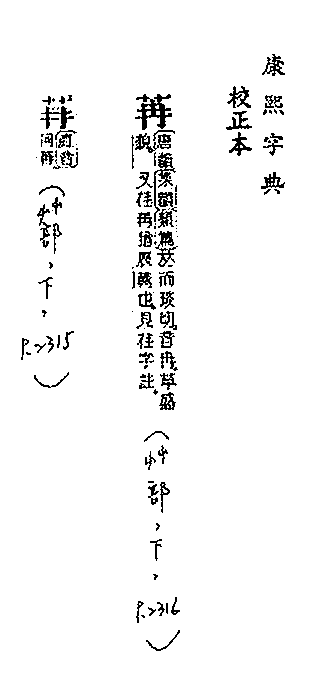 康熙字典
校正本
苒
唐韻集韻類篇𠀤而琰切音冉草盛
貌 又荏苒猶展轉也見荏字註
(艸部,下,
P.2316)
同苒
(艸部,下,
P.2315)